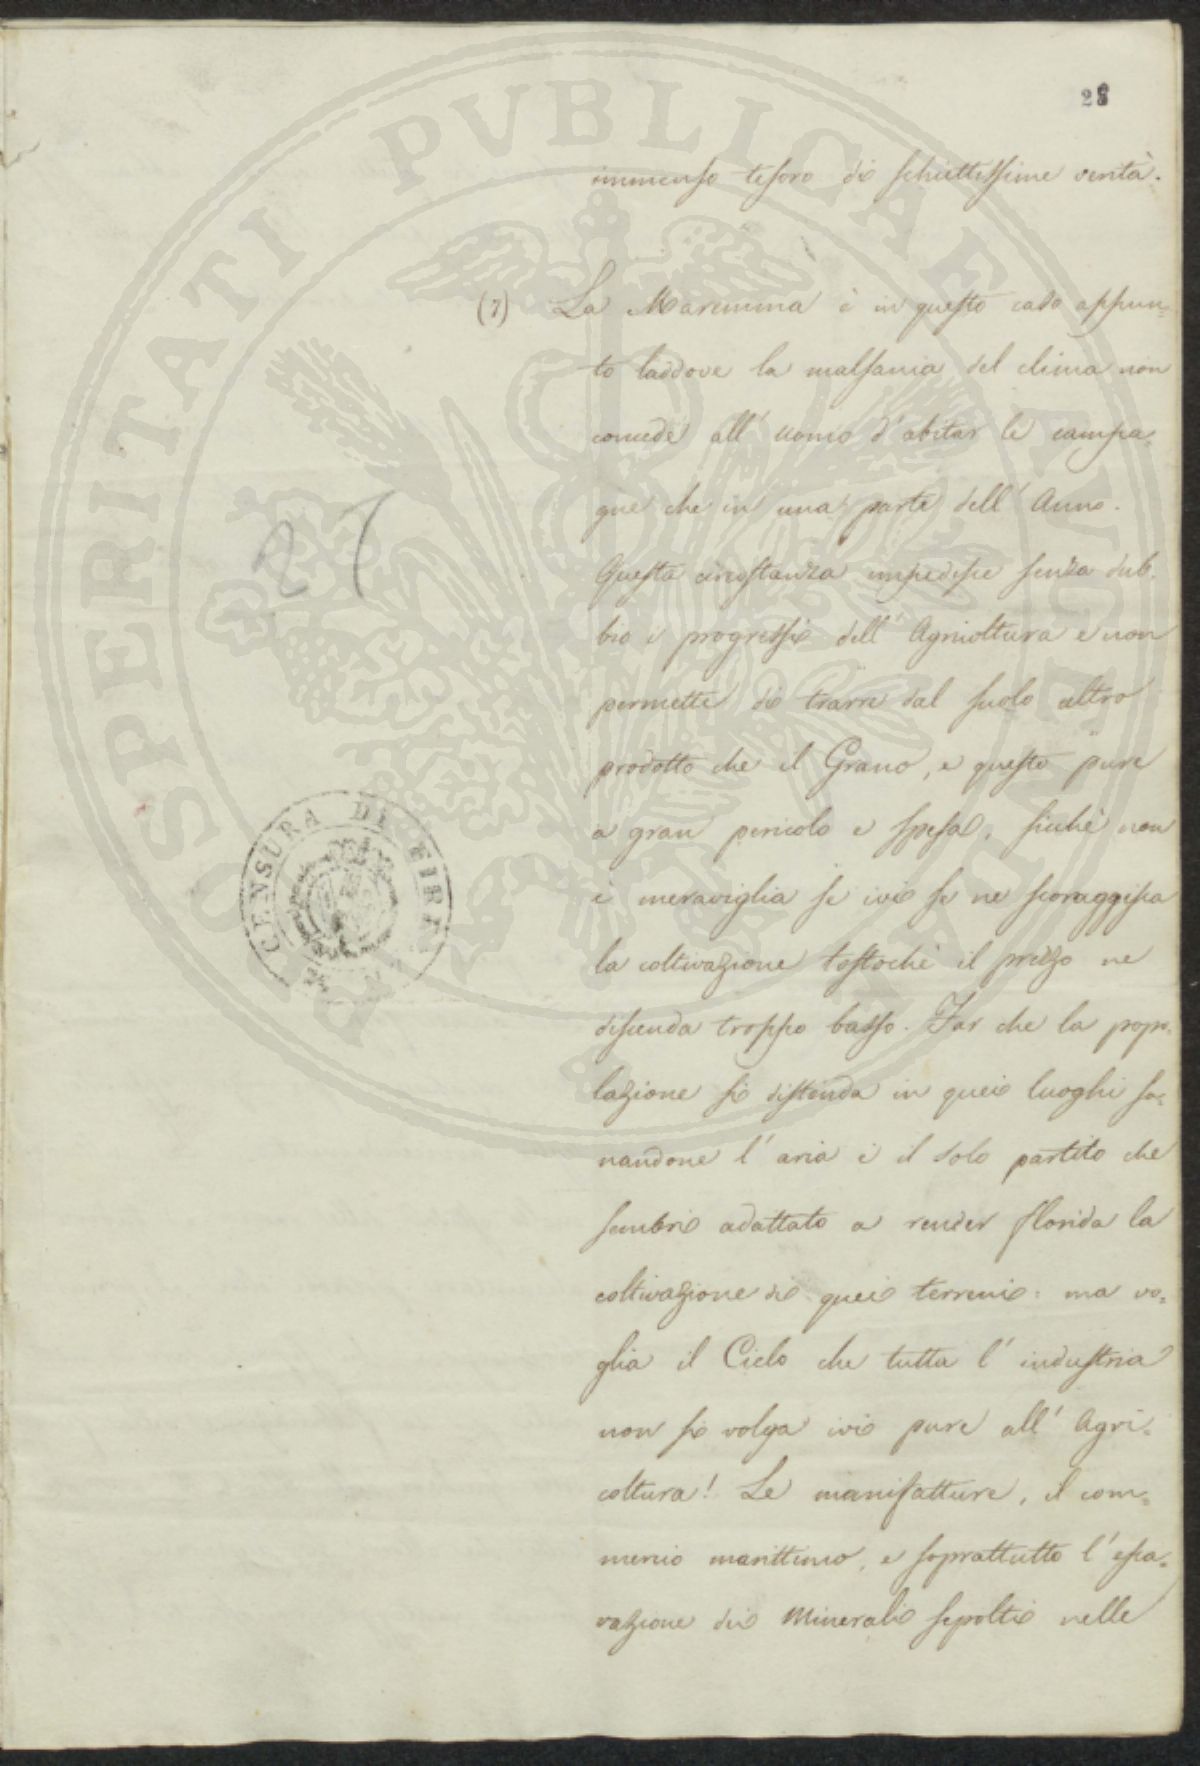 28
immenso tesoro di schiettissime verità.
(7) La Maremma è in questo caso appun=
to laddove la malsania del clima non
concede all' uomo d' abitar le campa=
gne che in una parte dell' Anno.
Questa circostanza impedisce senza dub=
bio i progressi dell' Agricoltura e non
permette di trarre dal suolo altro
prodotto che il Grano, e questo pure
a gran pericolo e spesa, sicchè non
è meraviglia se ivi se ne scoraggisca
la coltivazione tostochè il prezzo ne
discenda troppo basso. Far che la popo=
lazione si distenda in quei luoghi sa=
nandone l' aria è il solo partito che
sembri adattato a render florida la
coltivazione di quei terreni: ma vo=
glia il Cielo che tutta l' industria
non si volga ivi pure all' Agri=
coltura! Le manifatture, il com=
mercio marittimo, e soprattutto l' esca=
vazione dei Minerali sepolti nelle
27
CENSURA DI FIRE
PROSPERITATI PVBLICAE AVGENDAE